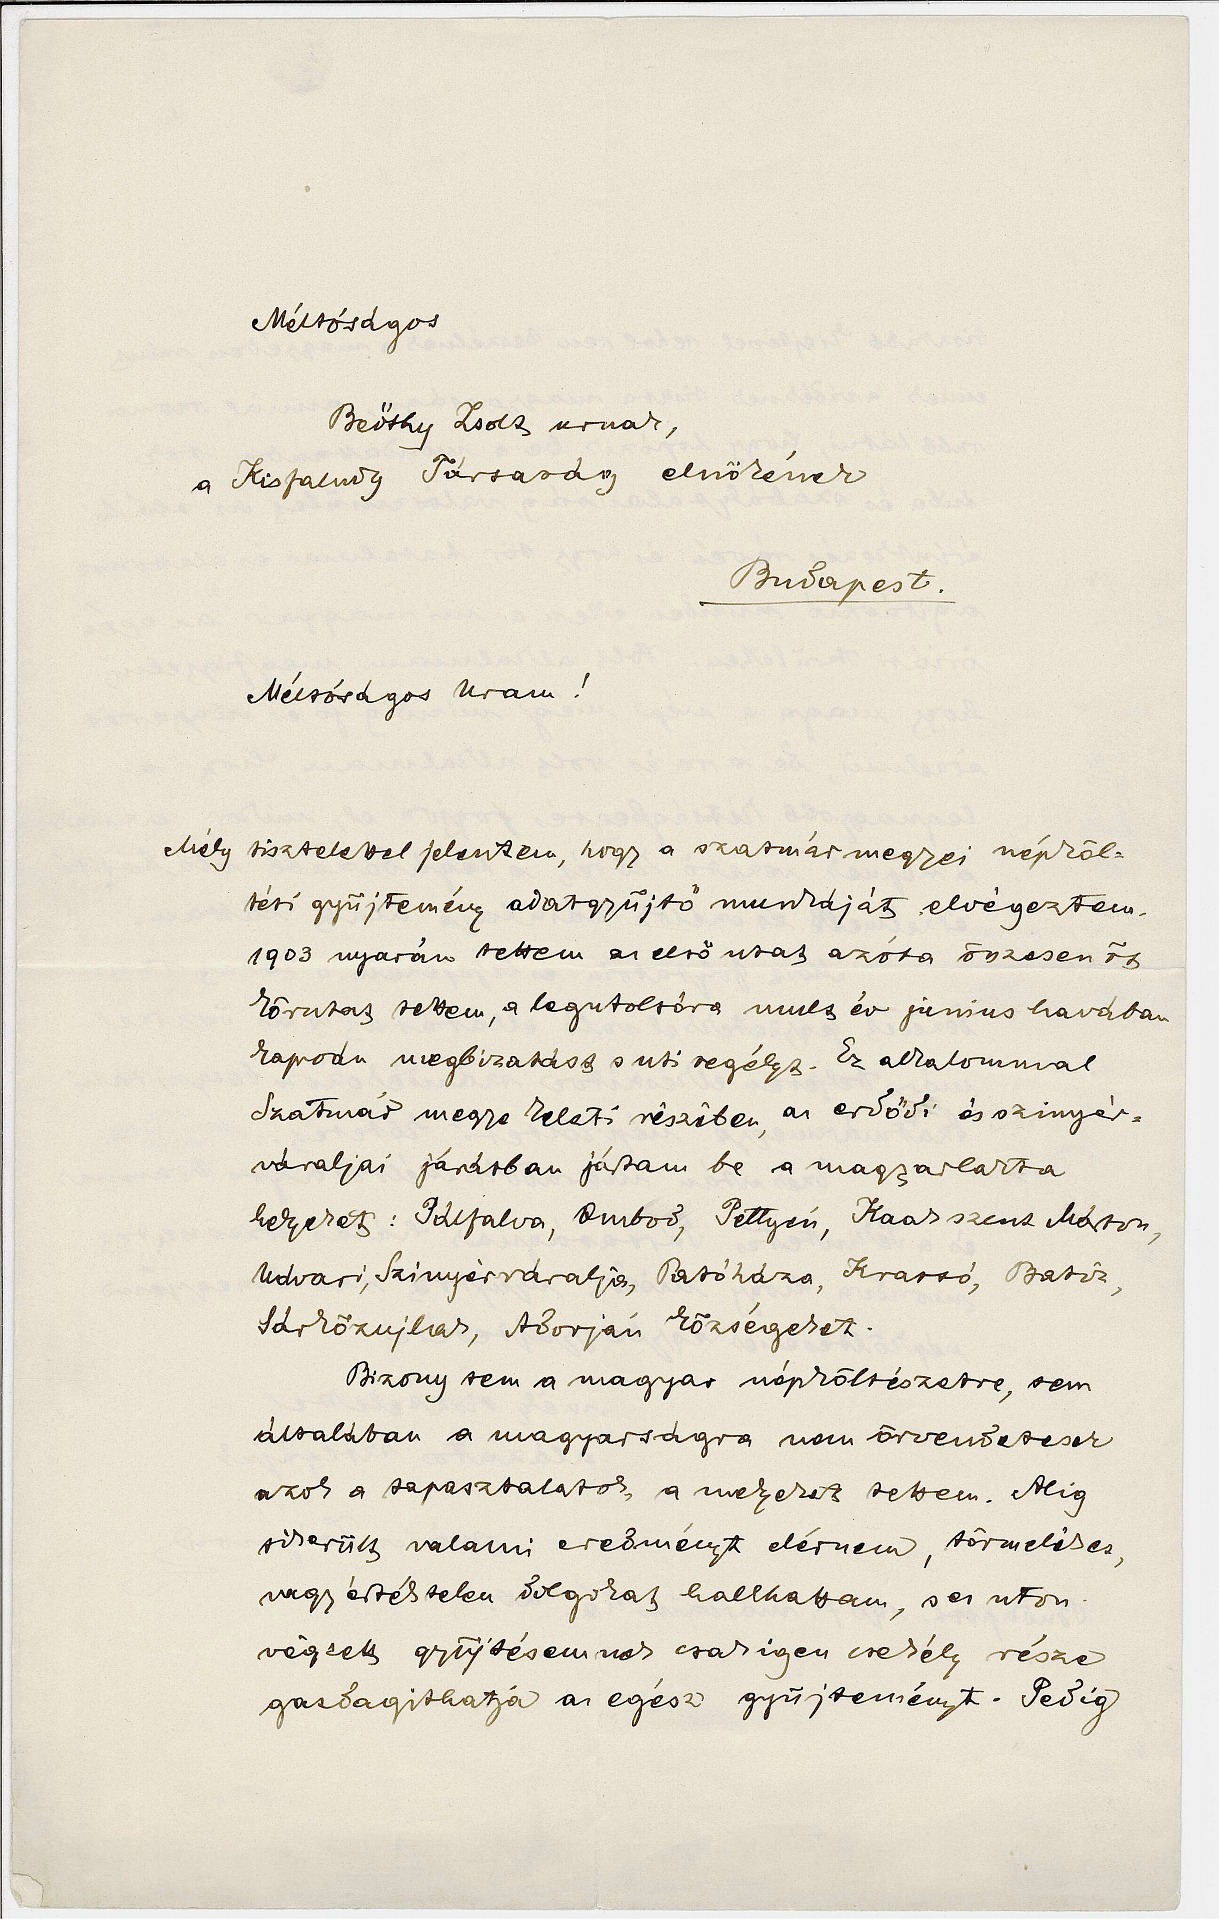 Méltóságos
Beöthy Zsolt urnak,
a Kisfaludy Társaság elnökének
Budapest.
Méltóságos Uram!
Mély tisztelettel jelentem, hogy a szatmármegyei népköl-
tési gyüjtemény adatgyüjtő munkáját elvégeztem.
1903 nyarán tettem az első utat azóta összesen öt
körutat tettem, a legutolsóra mult év junius havában
kapván megbizatást s uti segélyt. Ez alkalommal
Szatmár megye keleti részében, az erdődi és szinyér-
váraljai járásban jártam be a magyarlakta
helyeket: Pálfalva, Ombod, Pettyén, Kaak szent Márton,
Udvari, Szinyérváralja, Patóháza, Krassó, Batiz,
Sárközujlak, Adorján községeket.
Bizony sem a magyar népköltészetre, sem
általában a magyarságra nem örvendetesek
azok a tapasztalatok, a melyeket tettem. Alig
sikerült valami eredményt elérnem, törmelékes,
vagy értéktelen dolgokat hallhattam, s ez uton
végzett gyüjtésemnek csak igen csekély része
gazdagithatja az egész gyüjteményt. Pedig